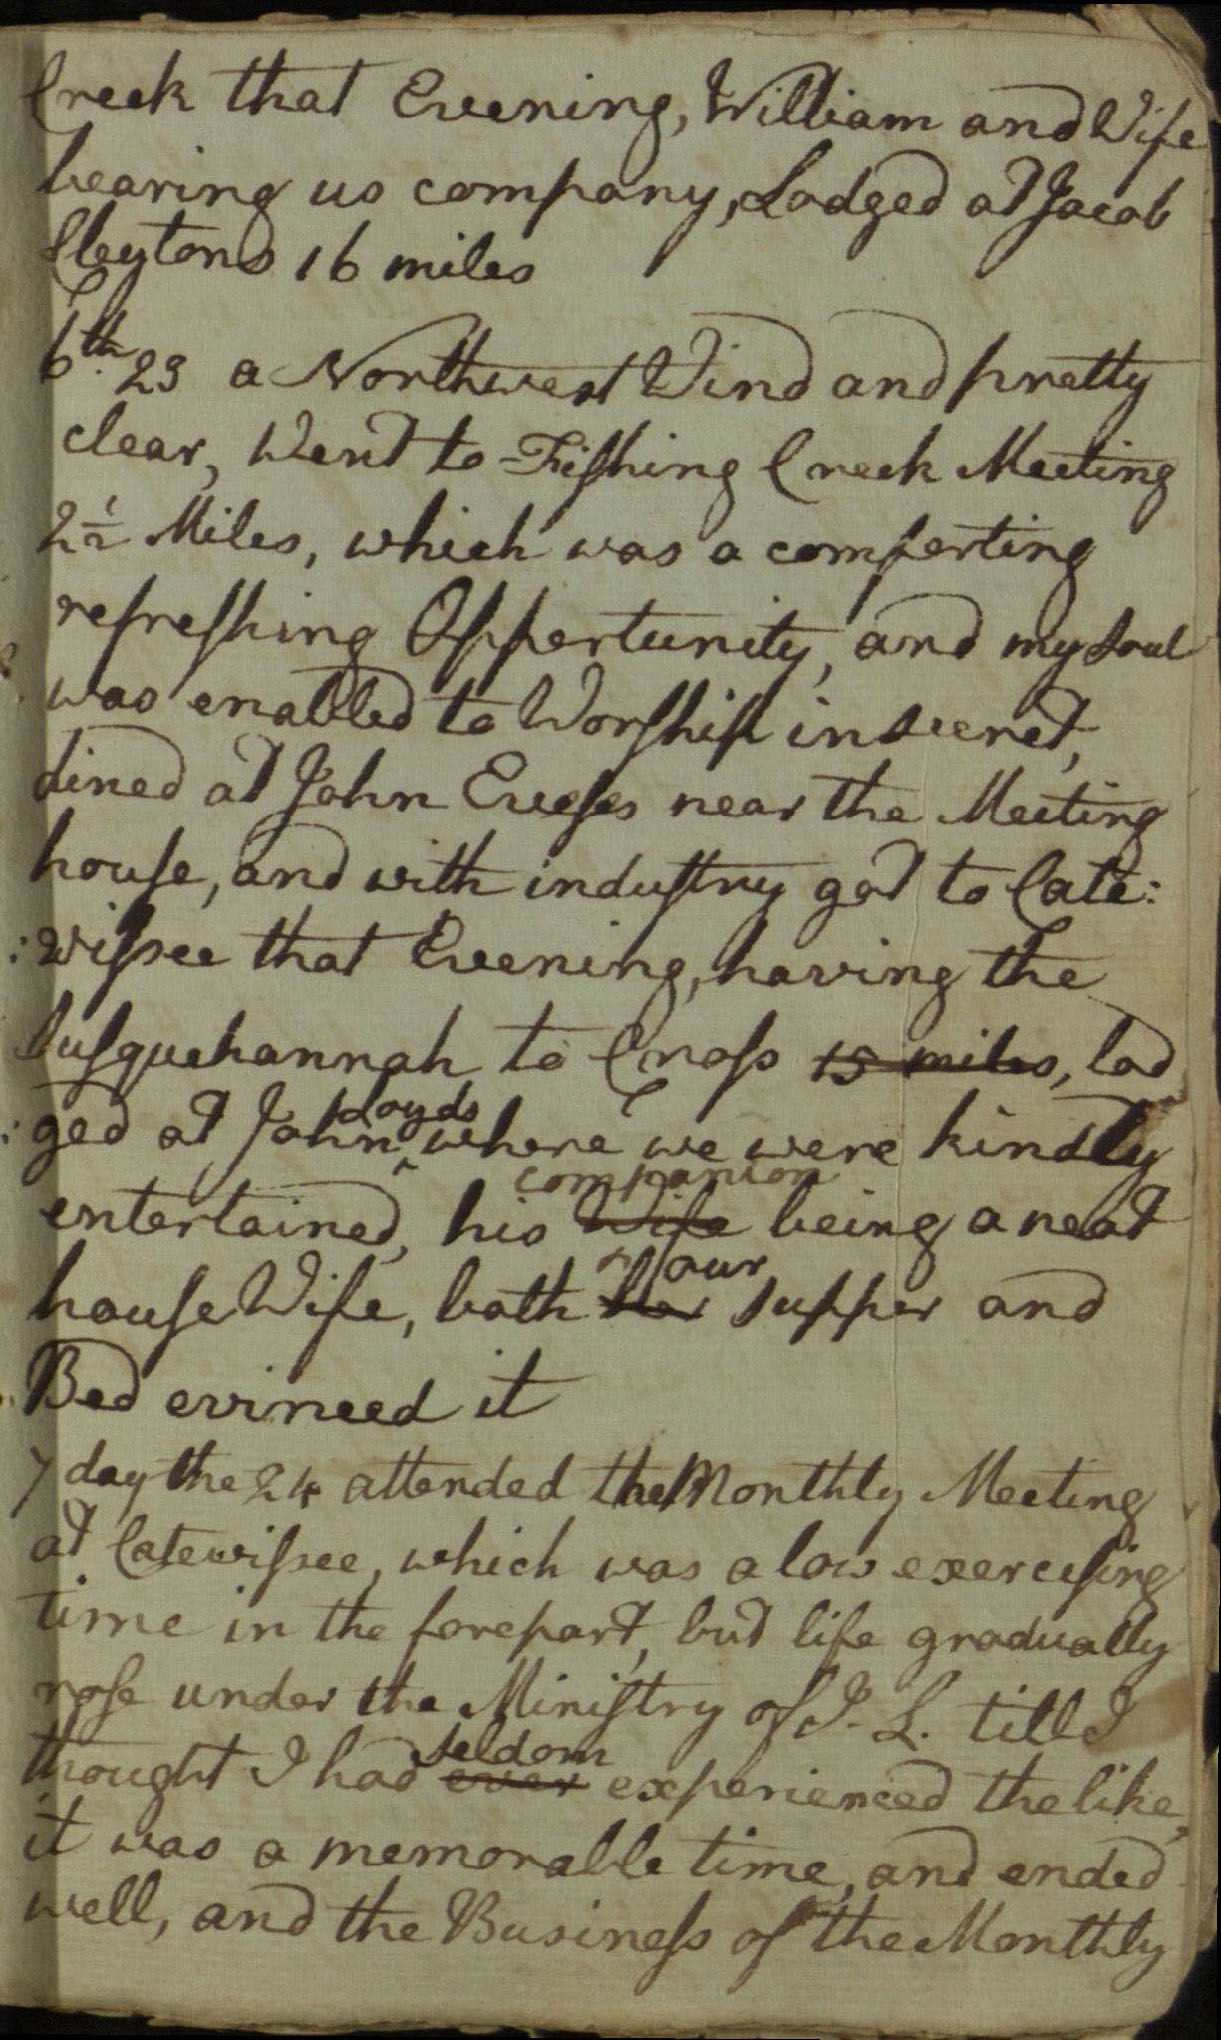 Creek that Evening, William and Wife
bearing us company, Lodged at Jacob
Cleytons 16 miles
6th. 23 a Northwest Wind and pretty
clear, Went to Fishing Creek Meeting
2½ Miles, which was a comforting
refreshing Oppertunity, and my Soul
was enabled to Worship in secret,
dined at John Eveses near the Meeting
house, and with industry got to Cate:
:wissee that Evening, having the
Susquehannah to Cross 15 miles, lod
:ged at John Loyds where we were kindly
entertained, his Wife companion being a neat
houseWife, both her our supper and
Bed evinced it
7 day the 24 attended the Monthly Meeting
at Catewissee, which was a low exercising
time in the forepart, but life gradually
rose under the Ministry of J. L. till I
thought I had ever seldom experienced the like,
it was a memorable time, and ended
well, and the Business of the Monthly